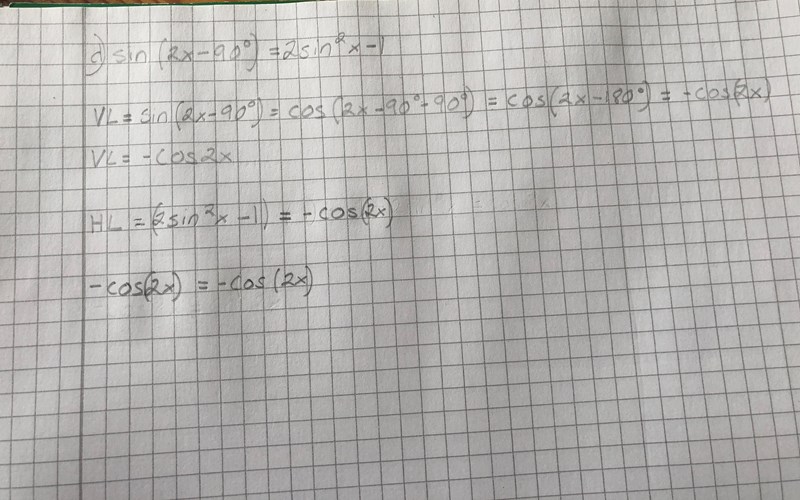 c) sin (2x-90°) = 2sin²x-1
VL = sin(2x-90°) = cos(2x-90°-90°) = cos(2x-180°) = -cos(2x)
VL = -cos2x
HL = (2sin²x-1) = -cos(2x)
-cos(2x) = -cos(2x)